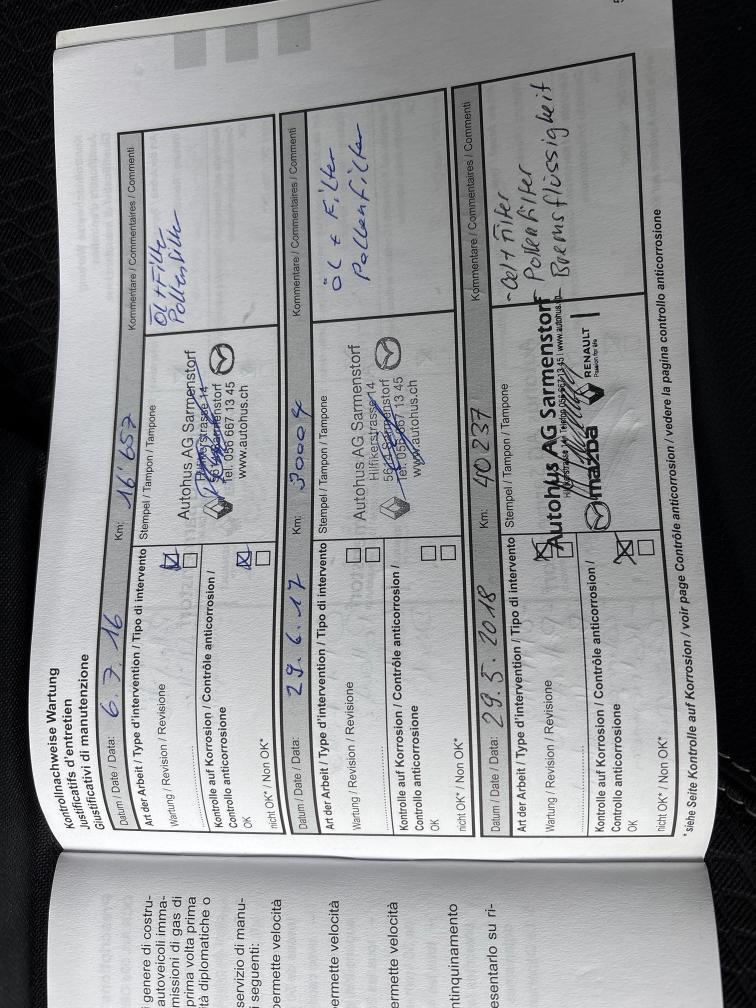 Kontrollnachweise Wartung
Justificatifs d'entretien
Giustificativi di manutenzione
Datum / Date / Data: 6. 7. 16 Km: 16'657 Kommentare / Commentaires / Commenti
Art der Arbeit / Type d'intervention / Tipo di intervento Stempel / Tampon / Tampone
Öl + Filter
Pollenfilter
Wartung / Revision / Revisione
Autohus AG Sarmenstorf
Hilfikerstrasse 14
Sarmenstorf
Tel. 056 667 13 45
www.autohus.ch
Kontrolle auf Korrosion / Contrôle anticorrosion /
Controllo anticorrosione
OK
nicht OK* / Non OK*
Datum / Date / Data: 29. 6. 17 Km: 30004 Kommentare / Commentaires / Commenti
Art der Arbeit / Type d'intervention / Tipo di intervento Stempel / Tampon / Tampone
Öl + Filter
Pollenfilter
Wartung / Revision / Revisione
Autohus AG Sarmenstorf
Hilfikerstrasse 14
Sarmenstorf
Tel. 056 667 13 45
www.autohus.ch
Kontrolle auf Korrosion / Contrôle anticorrosion /
Controllo anticorrosione
OK
nicht OK* / Non OK*
Datum / Date / Data: 29. 5. 2018 Km: 40237 Kommentare / Commentaires / Commenti
Art der Arbeit / Type d'intervention / Tipo di intervento Stempel / Tampon / Tampone
- Oel + Filter
Pollenfilter
- Bremsflüssigkeit
Wartung / Revision / Revisione
Autohus AG Sarmenstorf
mazda RENAULT
Kontrolle auf Korrosion / Contrôle anticorrosion /
Controllo anticorrosione
OK
nicht OK* / Non OK*
* siehe Seite Kontrolle auf Korrosion / voir page Contrôle anticorrosion / vedere la pagina controllo anticorrosione
genere di costru-
autoveicoli imma-
missioni di gas di
prima volta prima
tà diplomatiche o
servizio di manu-
i seguenti:
permette velocità
ermette velocità
ermette velocità
ntinquinamento
esentarlo su ri-